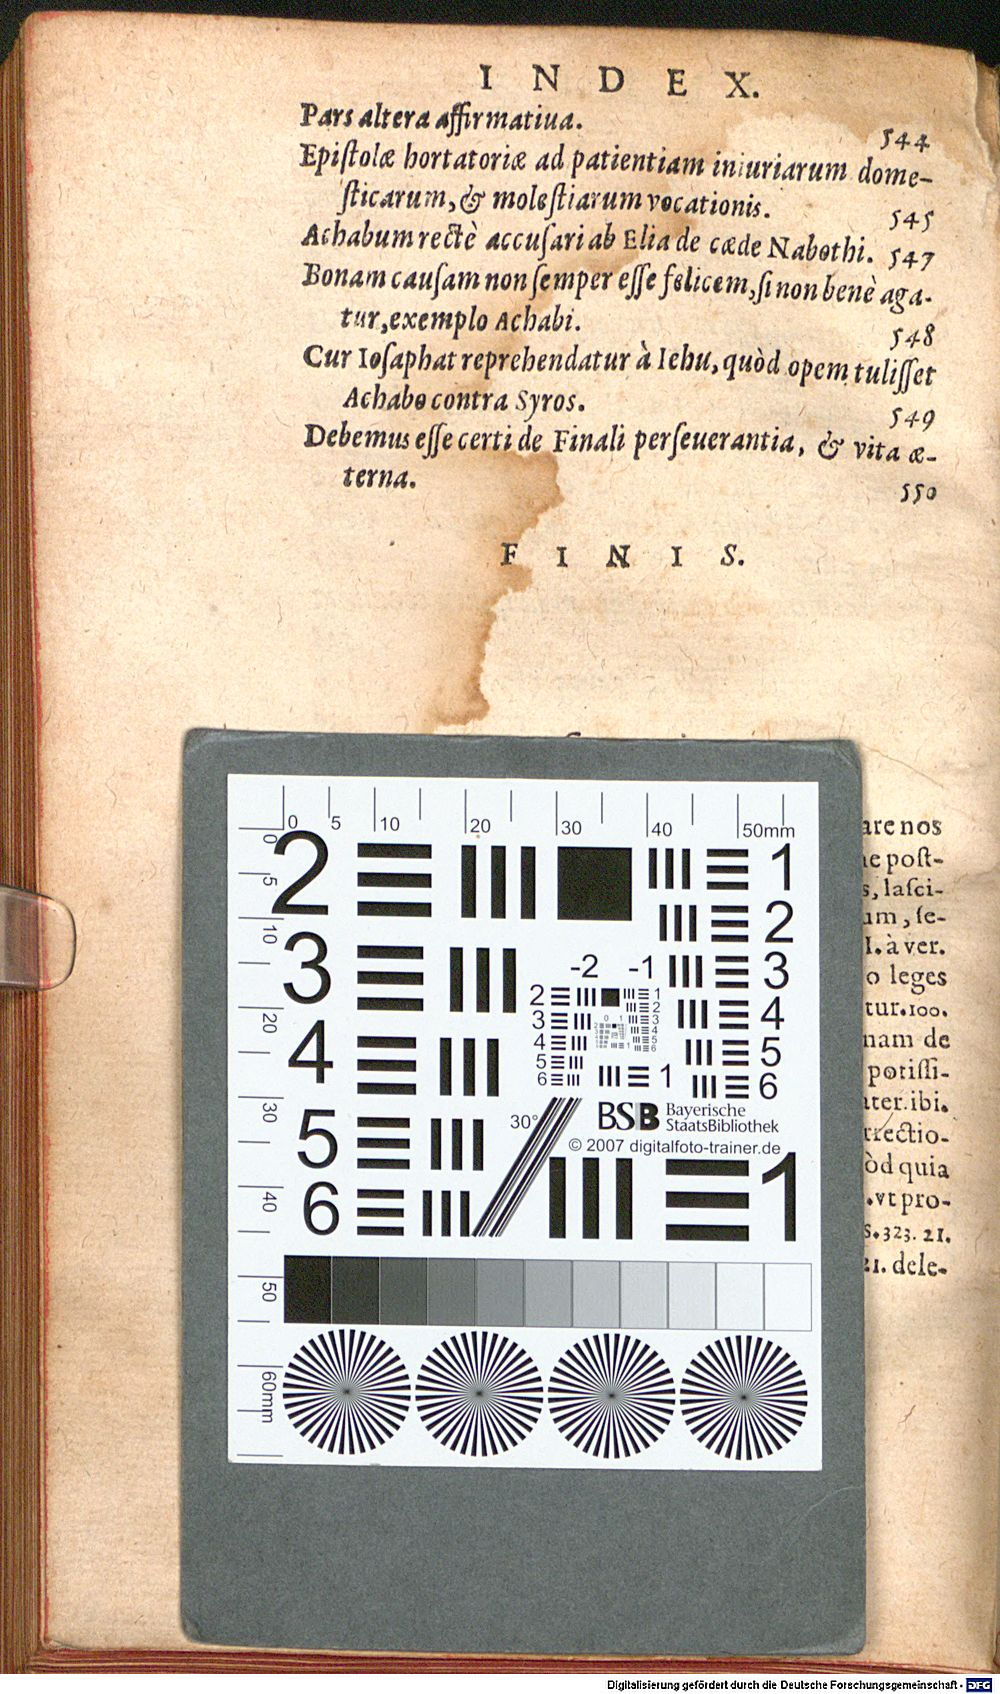 INDEX.
Pars altera affirmatiua. 544
Epiſtolæ hortatoriæ ad patientiam iniuriarum dome-
ſticarum, & moleſtiarum vocationis. 545
Achabum rectè accuſari ab Elia de cæde Nabothi. 547
Bonam cauſam non ſemper eſſe felicem, ſi non benè aga-
tur, exemplo Achabi. 548
Cur Ioſaphat reprehendatur à Iehu, quòd opem tuliſſet
Achabo contra Syros. 549
Debemus eſſe certi de Finali perſeuerantia, & vita æ-
terna. 550
FINIS.
nos
poſt-
laſci-
ſe-
I. à ver.
leges
100.
de
potiſſi-
ibi.
quia
vt pro-
323. 21.
21. dele-
0 5 10 20 30 40 50mm
0 5 10 20 30 40 50 60mm
2 1
2
3 3
-2 -1
4 4
5 5
6 6
2 1
3 2
4 3
5 4
6 5
6
1
30°
BSB Bayerische
StaatsBibliothek
© 2007 digitalfoto-trainer.de
1
Digitalisierung gefördert durch die Deutsche Forschungsgemeinschaft - DFG